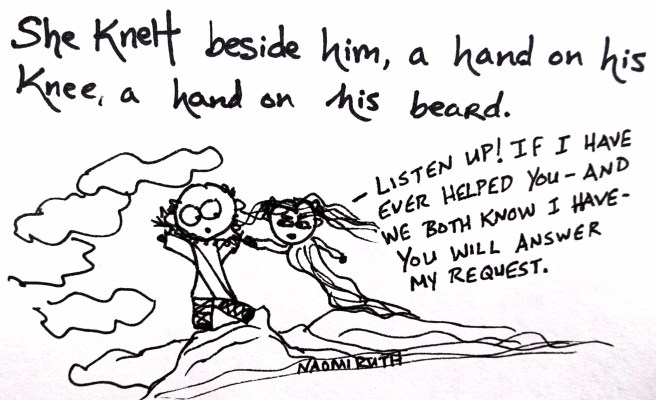 She Knelt beside him, a hand on his
Knee, a hand on his beard.
- LISTEN UP! IF I HAVE
EVER HELPED YOU - AND
WE BOTH KNOW I HAVE -
YOU WILL ANSWER
MY REQUEST.
NAOMI RUTH